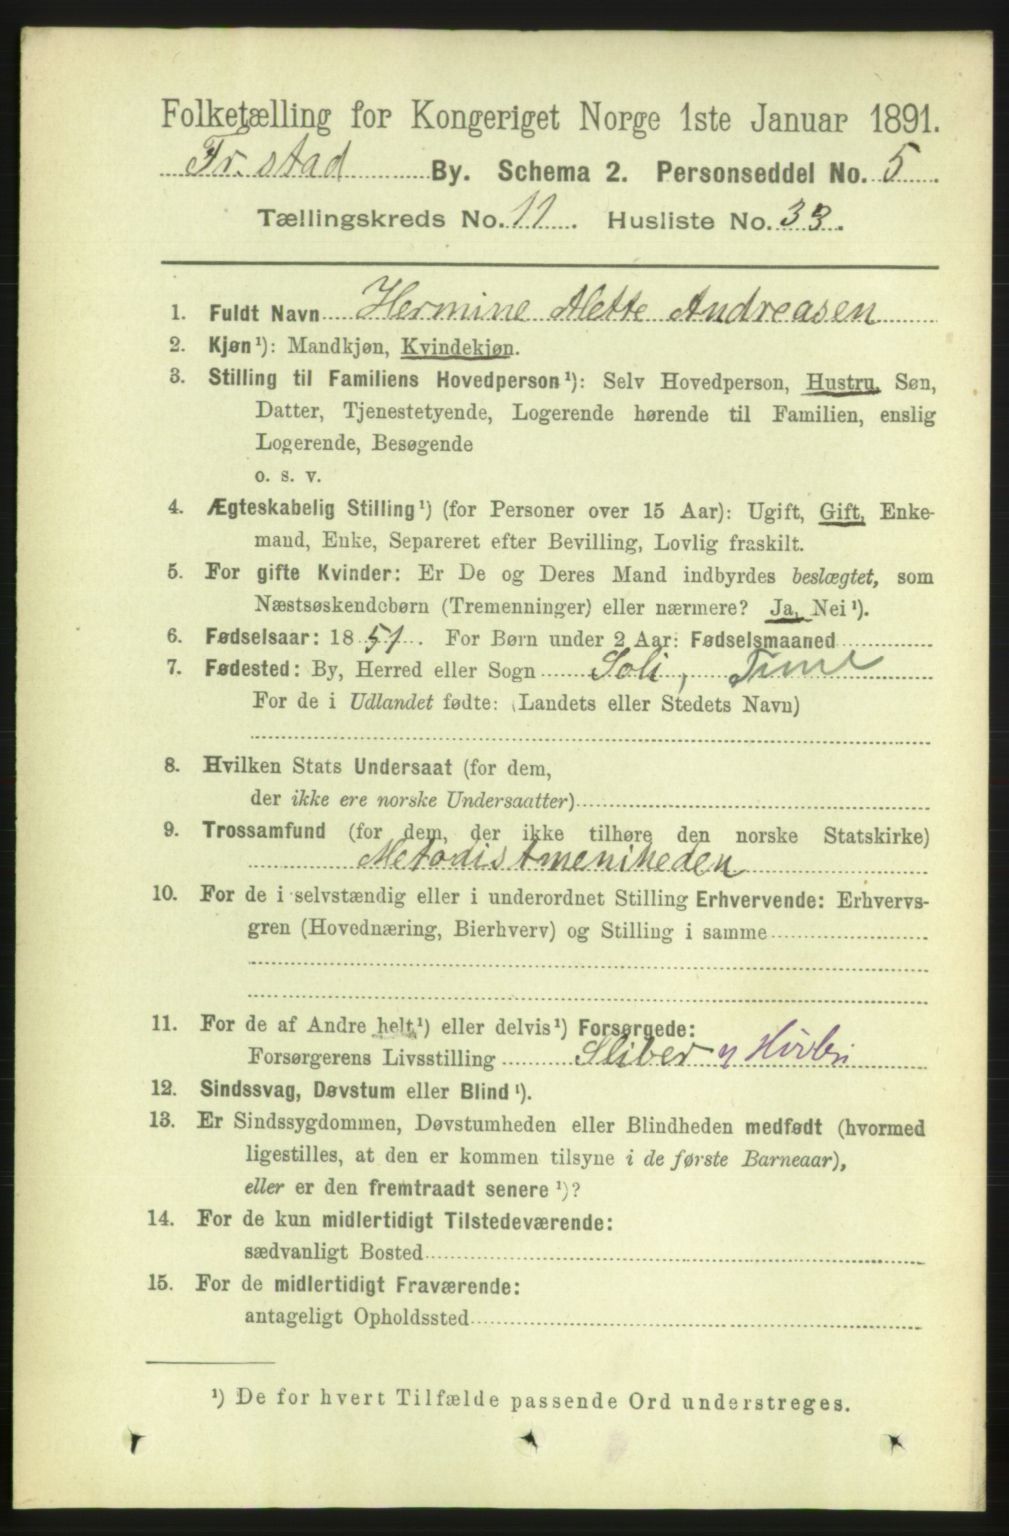 Folketælling for Kongeriget Norge 1ste Januar 1891.
Fr. stad By. Schema 2. Personseddel No. 5
Tællingskreds No. 11. Husliste No. 33.
1. Fuldt Navn Hermine Alette Andreasen
2. Kjøn¹): Mandkjøn, Kvindekjøn.
3. Stilling til Familiens Hovedperson¹): Selv Hovedperson, Hustru, Søn,
Datter, Tjenestetyende, Logerende hørende til Familien, enslig
Logerende, Besøgende
o. s. v.
4. Ægteskabelig Stilling¹) (for Personer over 15 Aar): Ugift, Gift, Enke-
mand, Enke, Separeret efter Bevilling, Lovlig fraskilt.
5. For gifte Kvinder: Er De og Deres Mand indbyrdes beslægtet, som
Næstsøskendebørn (Tremenninger) eller nærmere? Ja, Nei¹).
6. Fødselsaar: 1851. For Børn under 2 Aar: Fødselsmaaned
7. Fødested: By, Herred eller Sogn Soli, Tune
For de i Udlandet fødte: (Landets eller Stedets Navn)
8. Hvilken Stats Undersaat (for dem,
der ikke ere norske Undersaatter)
9. Trossamfund (for dem, der ikke tilhøre den norske Statskirke)
Metodistmenikeden
10. For de i selvstændig eller i underordnet Stilling Erhvervende: Erhvervs-
gren (Hovednæring, Bierhverv) og Stilling i samme
11. For de af Andre helt¹) eller delvis¹) Forsørgede:
Forsørgerens Livsstilling Sliber
12. Sindssvag, Døvstum eller Blind¹).
13. Er Sindssygdommen, Døvstumheden eller Blindheden medfødt (hvormed
ligestilles, at den er kommen tilsyne i de første Barneaar),
eller er den fremtraadt senere¹)?
14. For de kun midlertidigt Tilstedeværende:
sædvanligt Bosted
15. For de midlertidigt Fraværende:
antageligt Opholdssted
¹) De for hvert Tilfælde passende Ord understreges.